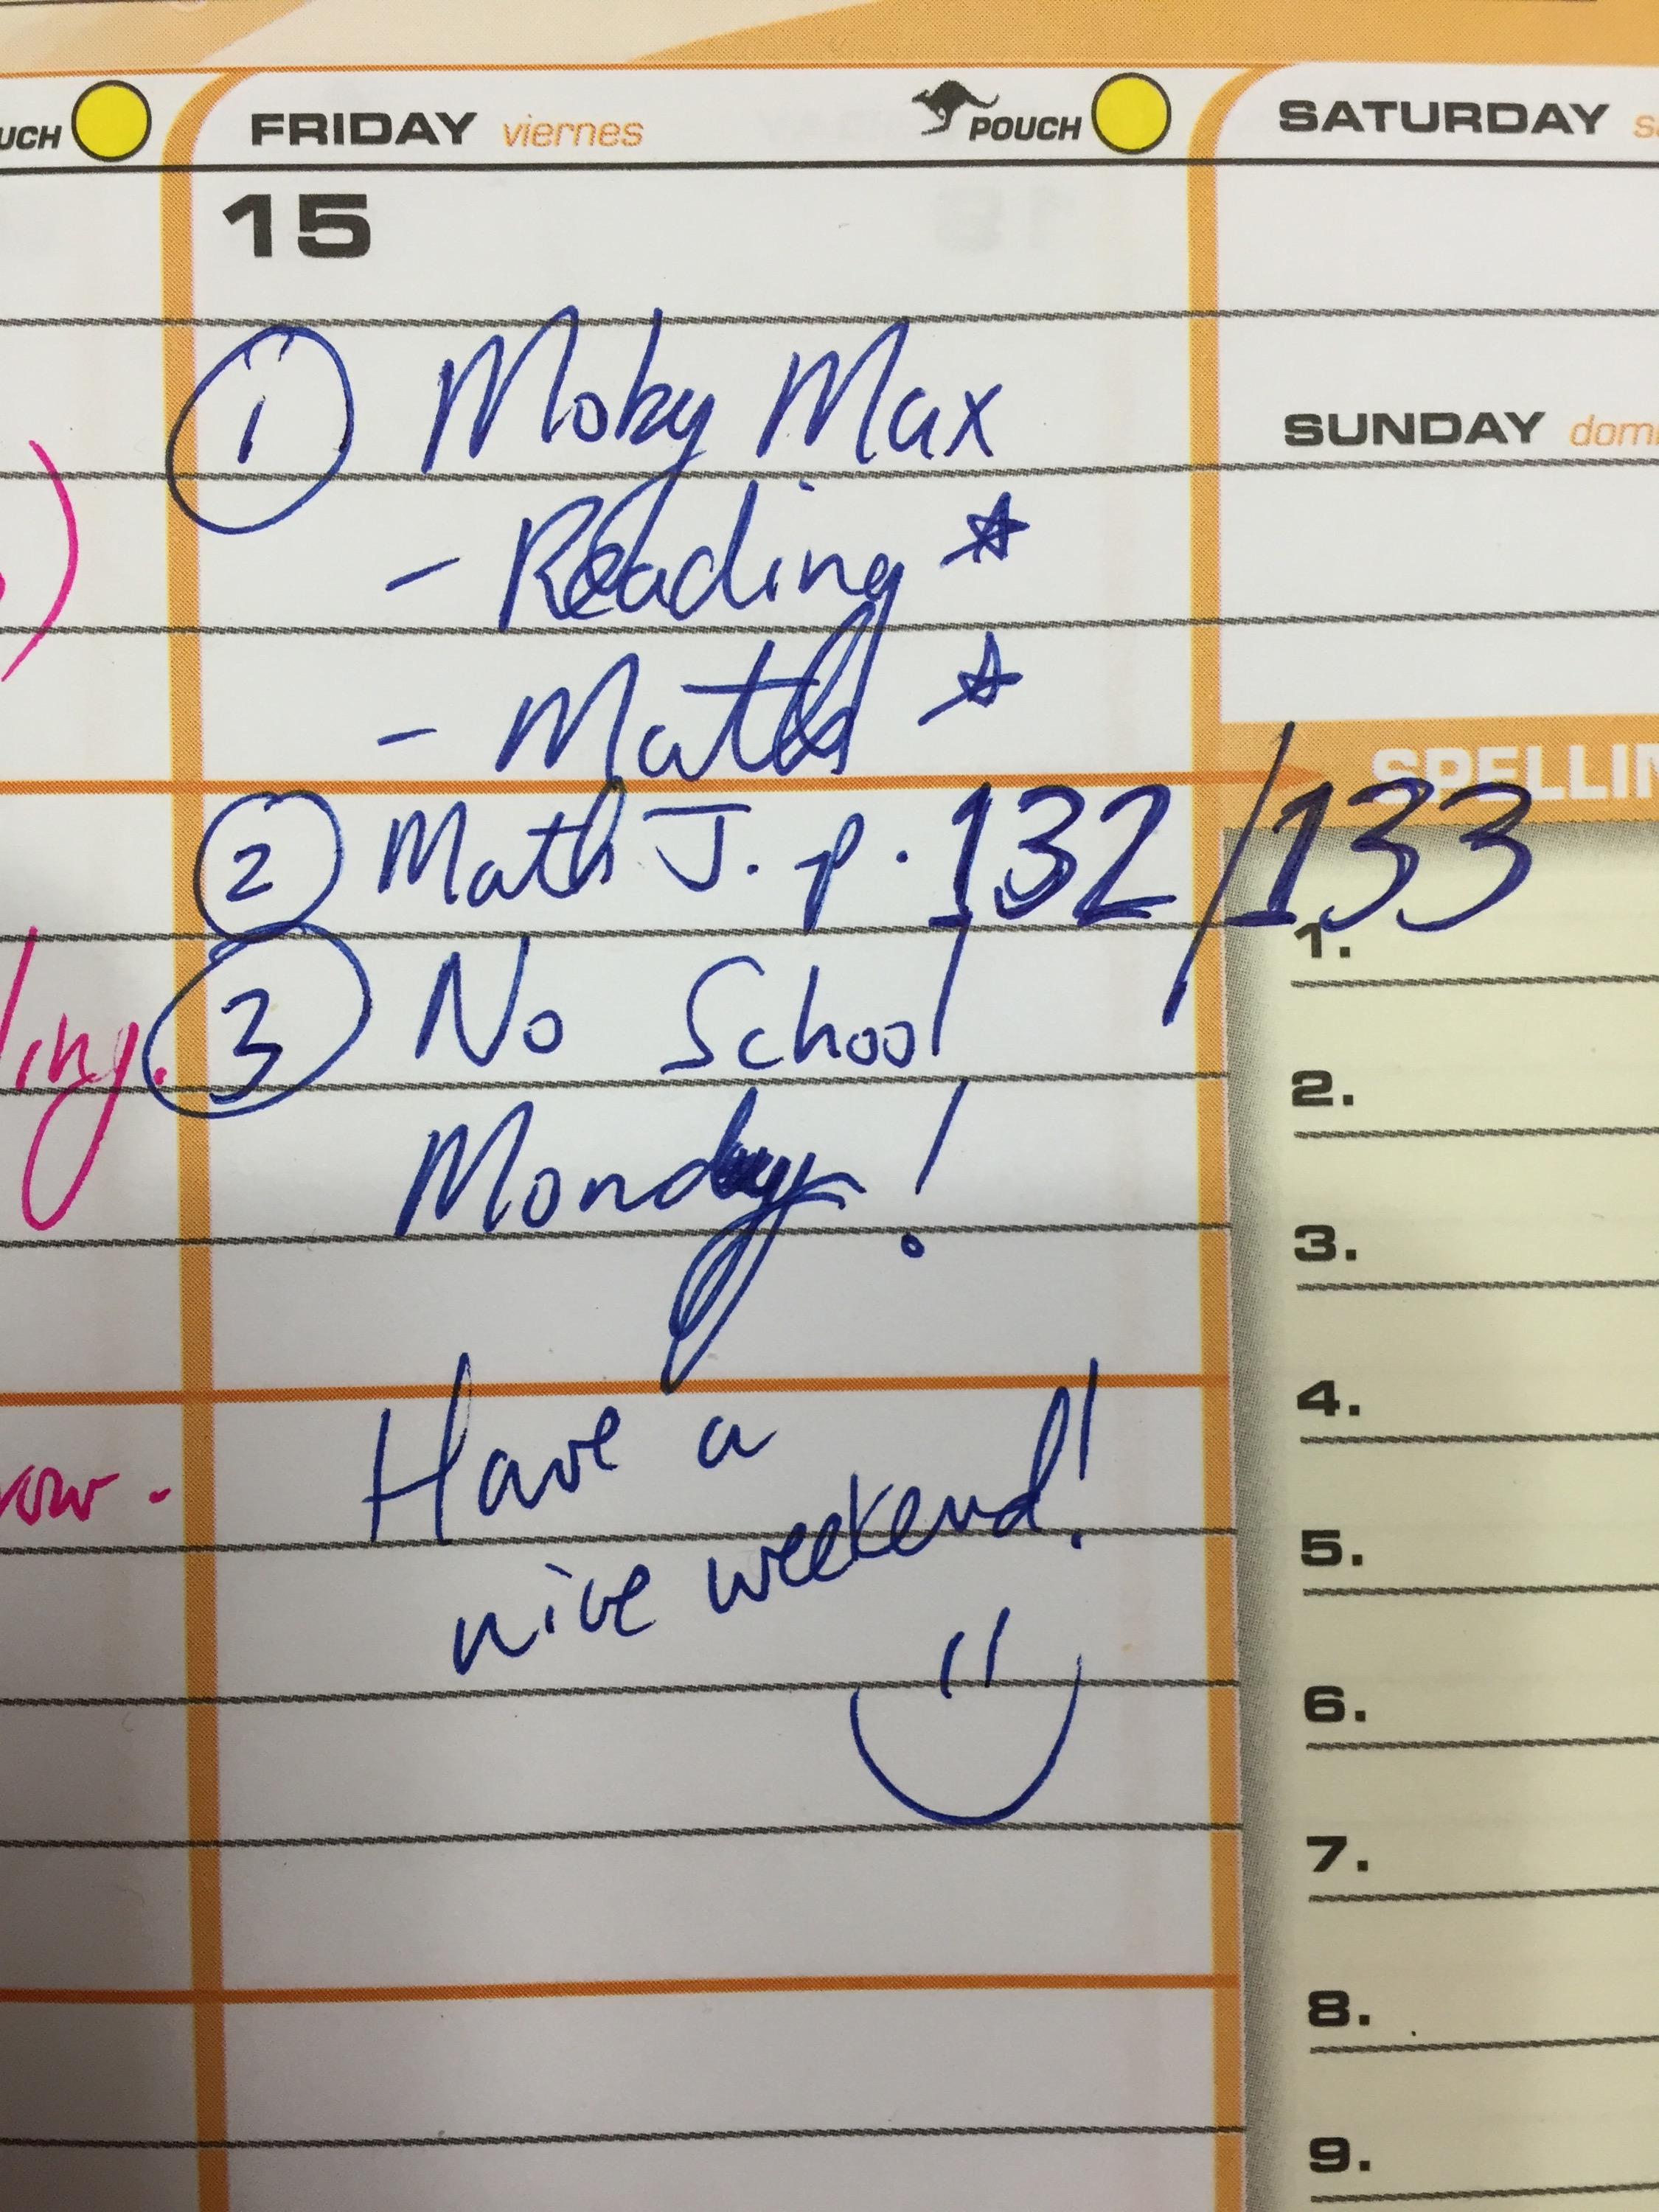 UCH
FRIDAY viernes
POUCH
SATURDAY
15
① Moby Max
- Reading ☆
- Math ☆
② Math J. p. 132/133
③ No School
Monday!
Have a
nice weekend!
SUNDAY domi
SPELLIN
1.
2.
3.
4.
5.
6.
7.
8.
9.